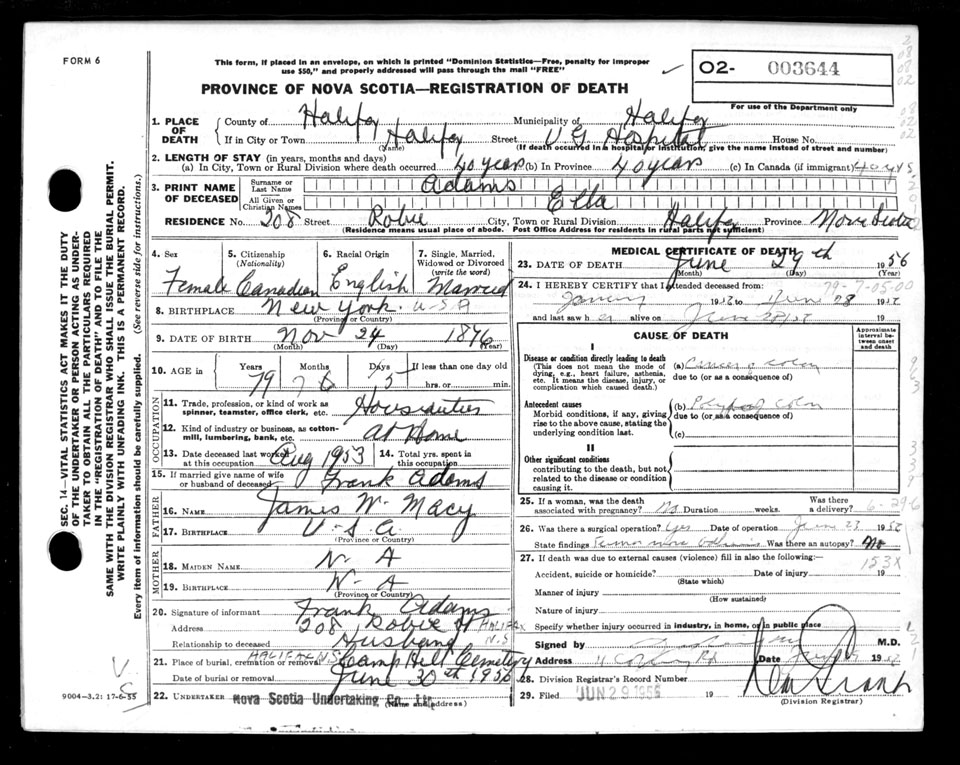 FORM 6
This form, if placed in an envelope, on which is printed "Dominion Statistics—Free, penalty for improper
use $50," and properly addressed will pass through the mail "FREE"
02- 003644
For use of the Department only
PROVINCE OF NOVA SCOTIA—REGISTRATION OF DEATH
SEC. 14—VITAL STATISTICS ACT MAKES IT THE DUTY
OF THE UNDERTAKER OR PERSON ACTING AS UNDER-
TAKER TO OBTAIN ALL THE PARTICULARS REQUIRED
IN THE "REGISTRATION OF DEATH" AND TO FILE THE
SAME WITH THE DIVISION REGISTRAR WHO SHALL ISSUE THE BURIAL PERMIT.
WRITE PLAINLY WITH UNFADING INK. THIS IS A PERMANENT RECORD.
Every item of information should be carefully supplied. (See reverse side for instructions.)
1. PLACE OF DEATH
County of Halifax Municipality of Halifax
If in City or Town Halifax Street V.G. Hospital House No.
(Name) (If death occurred in a hospital or institution, give the name instead of street and number)
2. LENGTH OF STAY (in years, months and days)
(a) In City, Town or Rural Division where death occurred 40 years (b) In Province 40 years (c) In Canada (if immigrant) 40 yrs
3. PRINT NAME OF DECEASED
Surname or Last Name Adams
All Given or Christian Names Ella
RESIDENCE No. 208 Street Robie City, Town or Rural Division Halifax Province Nova Scotia
(Residence means usual place of abode. Post Office Address for residents in rural parts not sufficient)
4. Sex Female
5. Citizenship (Nationality) Canadian
6. Racial Origin English
7. Single, Married, Widowed or Divorced (write the word) Married
8. BIRTHPLACE New York. U-S-A
(Province or Country)
9. DATE OF BIRTH Nov 24 1876
(Month) (Day) (Year)
10. AGE IN Years 79 Months Days 5 If less than one day
hrs. or min.
OCCUPATION
11. Trade, profession, or kind of work as
spinner, teamster, office clerk, etc. Housewife
12. Kind of industry or business, as cotton-
mill, lumbering, bank, etc. at Home
13. Date deceased last worked at this occupation Aug 1953 14. Total yrs. spent in this occupation
15. If married give name of wife
or husband of deceased Frank Adams
FATHER
16. NAME James W. Macy
17. BIRTHPLACE U.S.A.
(Province or Country)
MOTHER
18. MAIDEN NAME N. A
19. BIRTHPLACE N-A
(Province or Country)
20. Signature of informant Frank Adams
Address 208 Robie St HALIFAX N.S
Relationship to deceased Husband
21. Place of burial, cremation or removal HALIFAX NS Camp Hill Cemetery
Date of burial or removal June 30th 1956
22. UNDERTAKER Nova Scotia Undertaking Co. Ltd.
(Name and address)
9004-3.2: 17-6-55
MEDICAL CERTIFICATE OF DEATH
23. DATE OF DEATH June 29th 1956
(Month) (Day) (Year)
24. I HEREBY CERTIFY that I attended deceased from: 79-7-05-00
19 to June 28 19
and last saw her alive on 19
CAUSE OF DEATH
Approximate interval between onset and death
I
Disease or condition directly leading to death
(This does not mean the mode of
dying, e.g., heart failure, asthenia,
etc. It means the disease, injury, or
complication which caused death.)
(a) Cancer of colon
due to (or as a consequence of)
Antecedent causes
Morbid conditions, if any, giving
rise to the above cause, stating the
underlying condition last.
(b) Colon
due to (or as a consequence of)
(c)
II
Other significant conditions
contributing to the death, but not
related to the disease or condition
causing it.
25. If a woman, was the death
associated with pregnancy? No Duration weeks. Was there a delivery?
6-296
26. Was there a surgical operation? Yes Date of operation June 23 19
State findings Was there an autopsy? No
27. If death was due to external causes (violence) fill in also the following:—
153X
Accident, suicide or homicide? Date of injury 19
(State which)
Manner of injury
(How sustained)
Nature of injury
Specify whether injury occurred in industry, in home, or in public place
Signed by M.D.
Address Date 19
28. Division Registrar's Record Number
29. Filed JUN 29 1956 19
(Division Registrar)